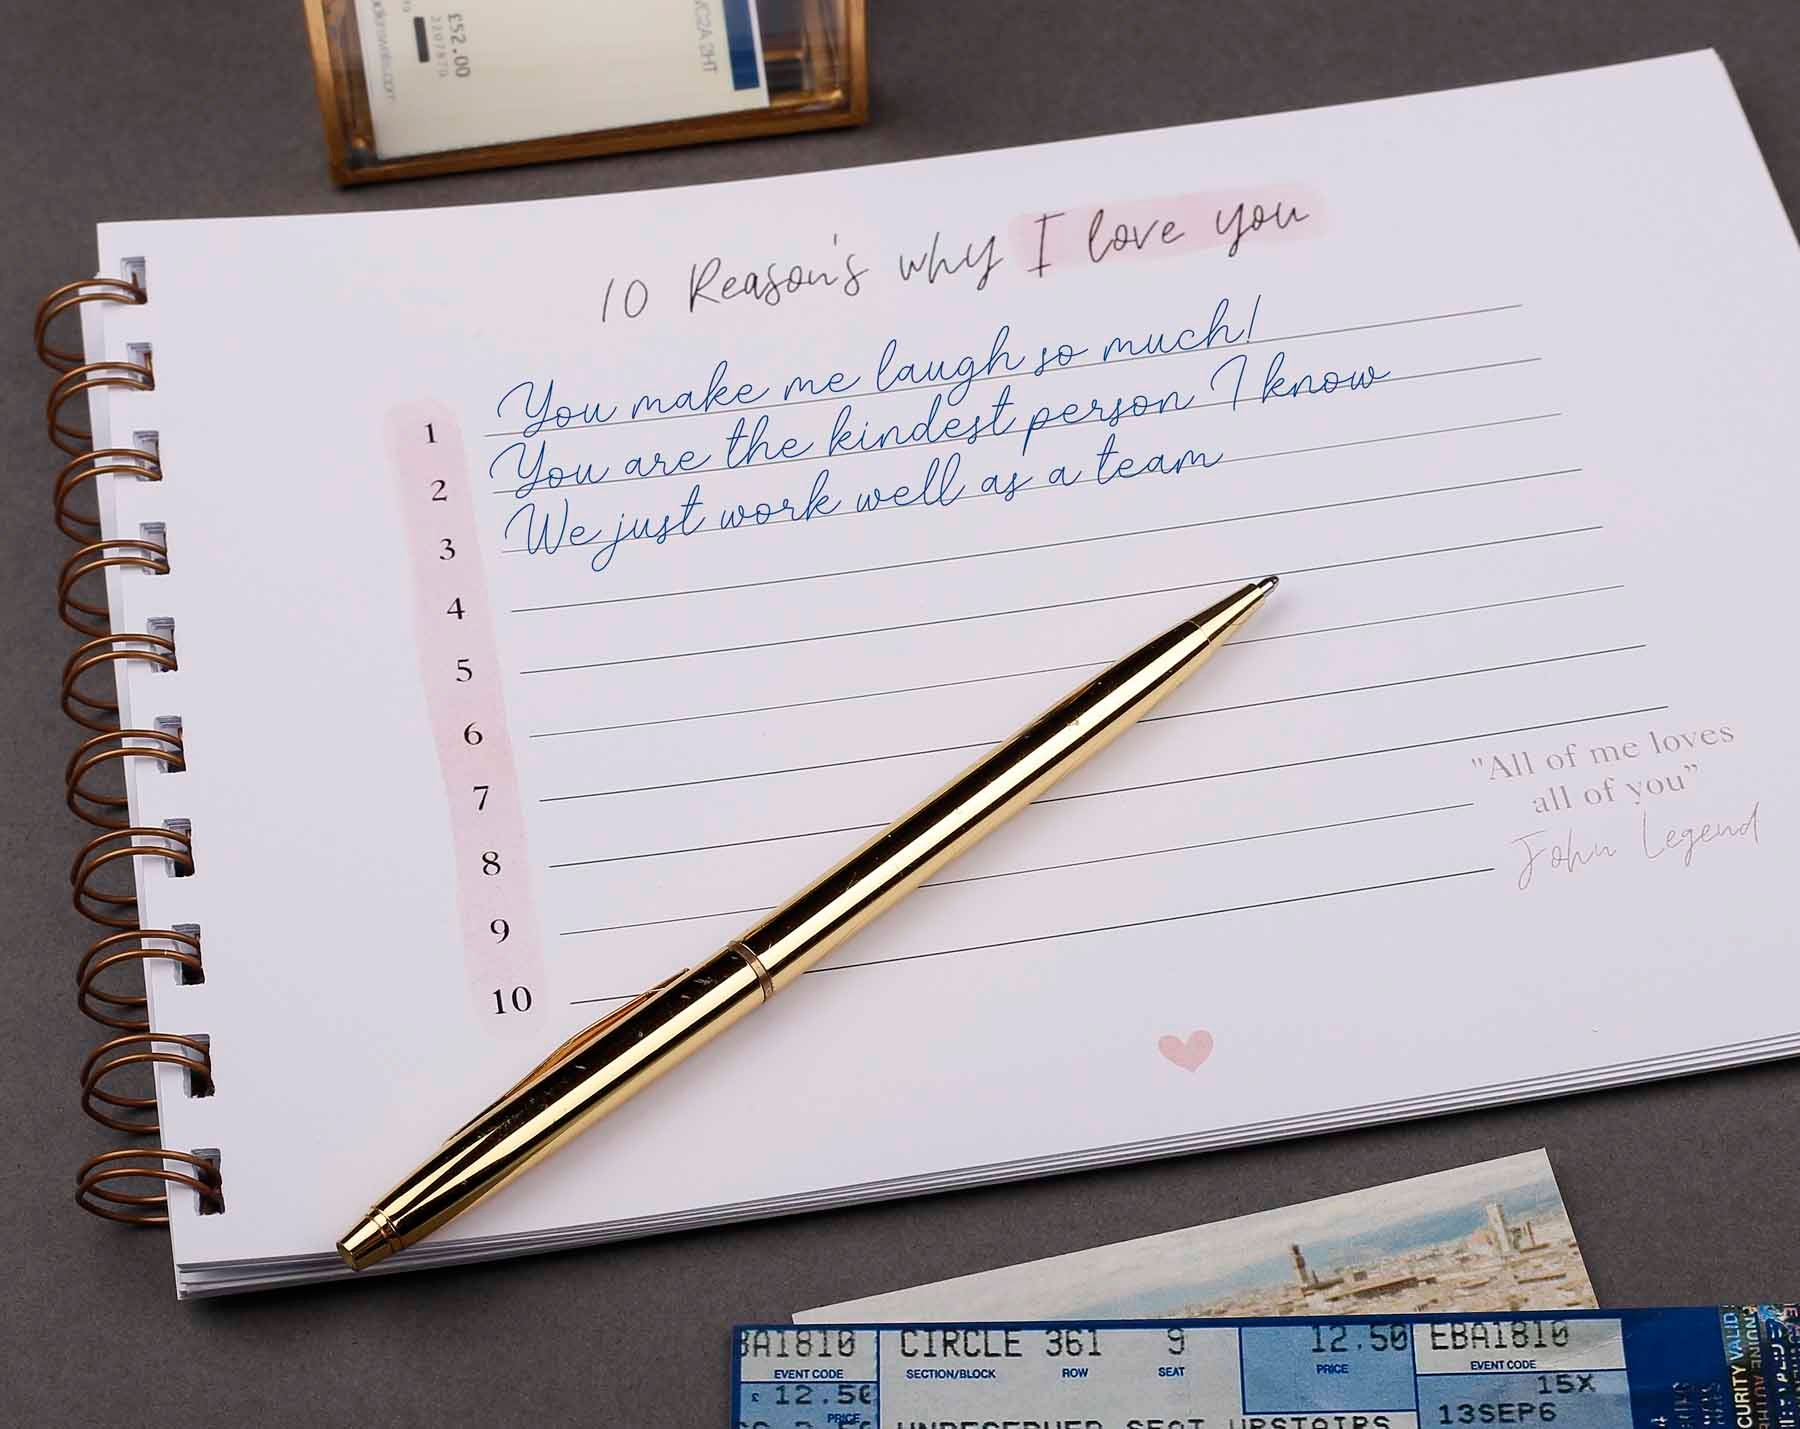 £52.00
10 Reason's why I love you
1 You make me laugh so much!
2 You are the kindest person I know
3 We just work well as a team
4
5
6
7
8
9
10
"All of me loves
all of you”
John Legend
BA1810 CIRCLE 361 9 12.50 EBA1810
EVENT CODE SECTION/BLOCK ROW SEAT PRICE EVENT CODE
£ 12.50 15X
PRICE 13SEP6
UNRESERVED SEAT UPSTAIRS